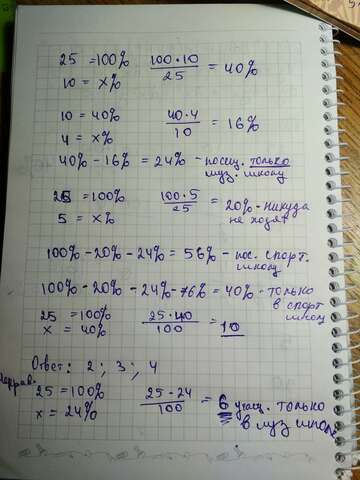 25 = 100% 100·10/25 = 40%
10 = x%
10 = 40% 40·4/10 = 16%
4 = x%
40% - 16% = 24% - посещ. только
муз. школу
25 = 100% 100·5/25 = 20% - никуда
5 = x% не ходят
100% - 20% - 24% = 56% - пос. спорт.
школу
100% - 20% - 24% - 16% = 40% - только
в спорт
школу
25 = 100% 25·40/100 = 10
x = 40%
Ответ: 2; 3; 4
25 = 100% 25·24/100 = 6 учащ. только
x = 24% в муз школе